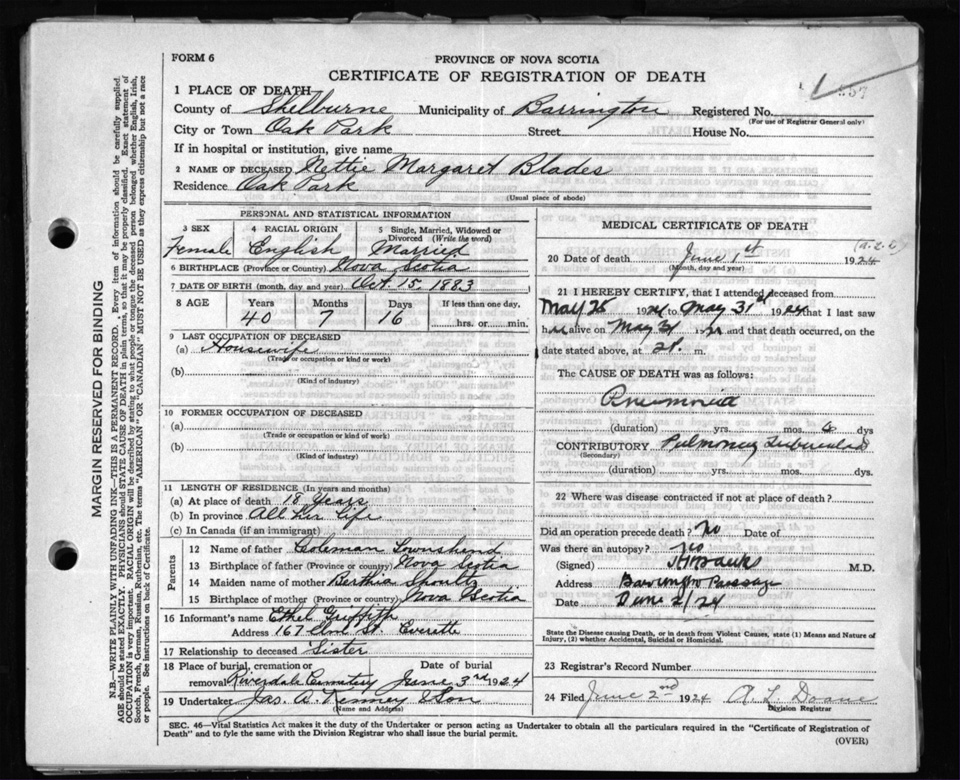 FORM 6
PROVINCE OF NOVA SCOTIA
CERTIFICATE OF REGISTRATION OF DEATH
557
1 PLACE OF DEATH
County of Shelburne Municipality of Barrington Registered No.
(For use of Registrar General only)
City or Town Oak Park Street House No.
If in hospital or institution, give name
2 NAME OF DECEASED Nettie Margaret Blades
Residence Oak Park
(Usual place of abode)
PERSONAL AND STATISTICAL INFORMATION
3 SEX 4 RACIAL ORIGIN 5 Single, Married, Widowed or Divorced (Write the word)
Female English Married
6 BIRTHPLACE (Province or Country) Nova Scotia
7 DATE OF BIRTH (month, day and year) Oct. 15. 1883
8 AGE Years Months Days If less than one day,
40 7 16 hrs. or min.
9 LAST OCCUPATION OF DECEASED
(a) Housewife
(Trade or occupation or kind or work)
(b)
(Kind of industry)
10 FORMER OCCUPATION OF DECEASED
(a)
(Trade or occupation or kind of work)
(b)
(Kind of industry)
11 LENGTH OF RESIDENCE (In years and months)
(a) At place of death 18 Years
(b) In province All her life
(c) In Canada (if an immigrant)
Parents
12 Name of father Coleman Townshend
13 Birthplace of father (Province or Country) Nova Scotia
14 Maiden name of mother Berthia
15 Birthplace of mother (Province or country) Nova Scotia
16 Informant's name Ethel Griffith
Address 167 Elm St. Everette
17 Relationship to deceased Sister
18 Place of burial, cremation or removal Date of burial
Riverdale Cemetery June 3rd 1924
19 Undertaker Jas. A. Kenney & Son
(Name and Address)
MEDICAL CERTIFICATE OF DEATH
20 Date of death June 1st 1924
(Month, day and year)
21 I HEREBY CERTIFY, that I attended deceased from
May 25 1924 to May 31st 1924 that I last saw
her alive on May 31 1924 and that death occurred, on the
date stated above, at m.
The CAUSE OF DEATH was as follows:
Pneumonia
(duration) yrs. mos. 6 dys
CONTRIBUTORY Pulmonary Tuberculosis
(Secondary)
(duration) yrs. mos. dys.
22 Where was disease contracted if not at place of death?
Did an operation precede death? No Date of
Was there an autopsy? No
(Signed) M.D.
Address Barrington Passage
Date June 2/24
State the Disease causing Death, or in death from Violent Causes, state (1) Means and Nature of
Injury, (2) whether Accidental, Suicidal or Homicidal.
23 Registrar's Record Number
24 Filed June 2nd 1924 A. L. Doane
Division Registrar
SEC. 46—Vital Statistics Act makes it the duty of the Undertaker or person acting as Undertaker to obtain all the particulars required in the "Certificate of Registration of
Death" and to fyle the same with the Division Registrar who shall issue the burial permit.
(OVER)
MARGIN RESERVED FOR BINDING
N.B.—WRITE PLAINLY WITH UNFADING INK—THIS IS A PERMANENT RECORD. Every item of information should be carefully supplied.
AGE should be stated EXACTLY. PHYSICIANS should STATE CAUSE OF DEATH in plain terms, so that it may be properly classified. Exact statement of
OCCUPATION is very important. RACIAL ORIGIN will be described by stating to what people or tongue the deceased person belonged whether English, Irish,
Scotch, French, German, Russian, Ruthenian, etc. The terms "AMERICAN" OR "CANADIAN" MUST NOT BE USED as they express citizenship but not a race
or people. See instructions on back of Certificate.